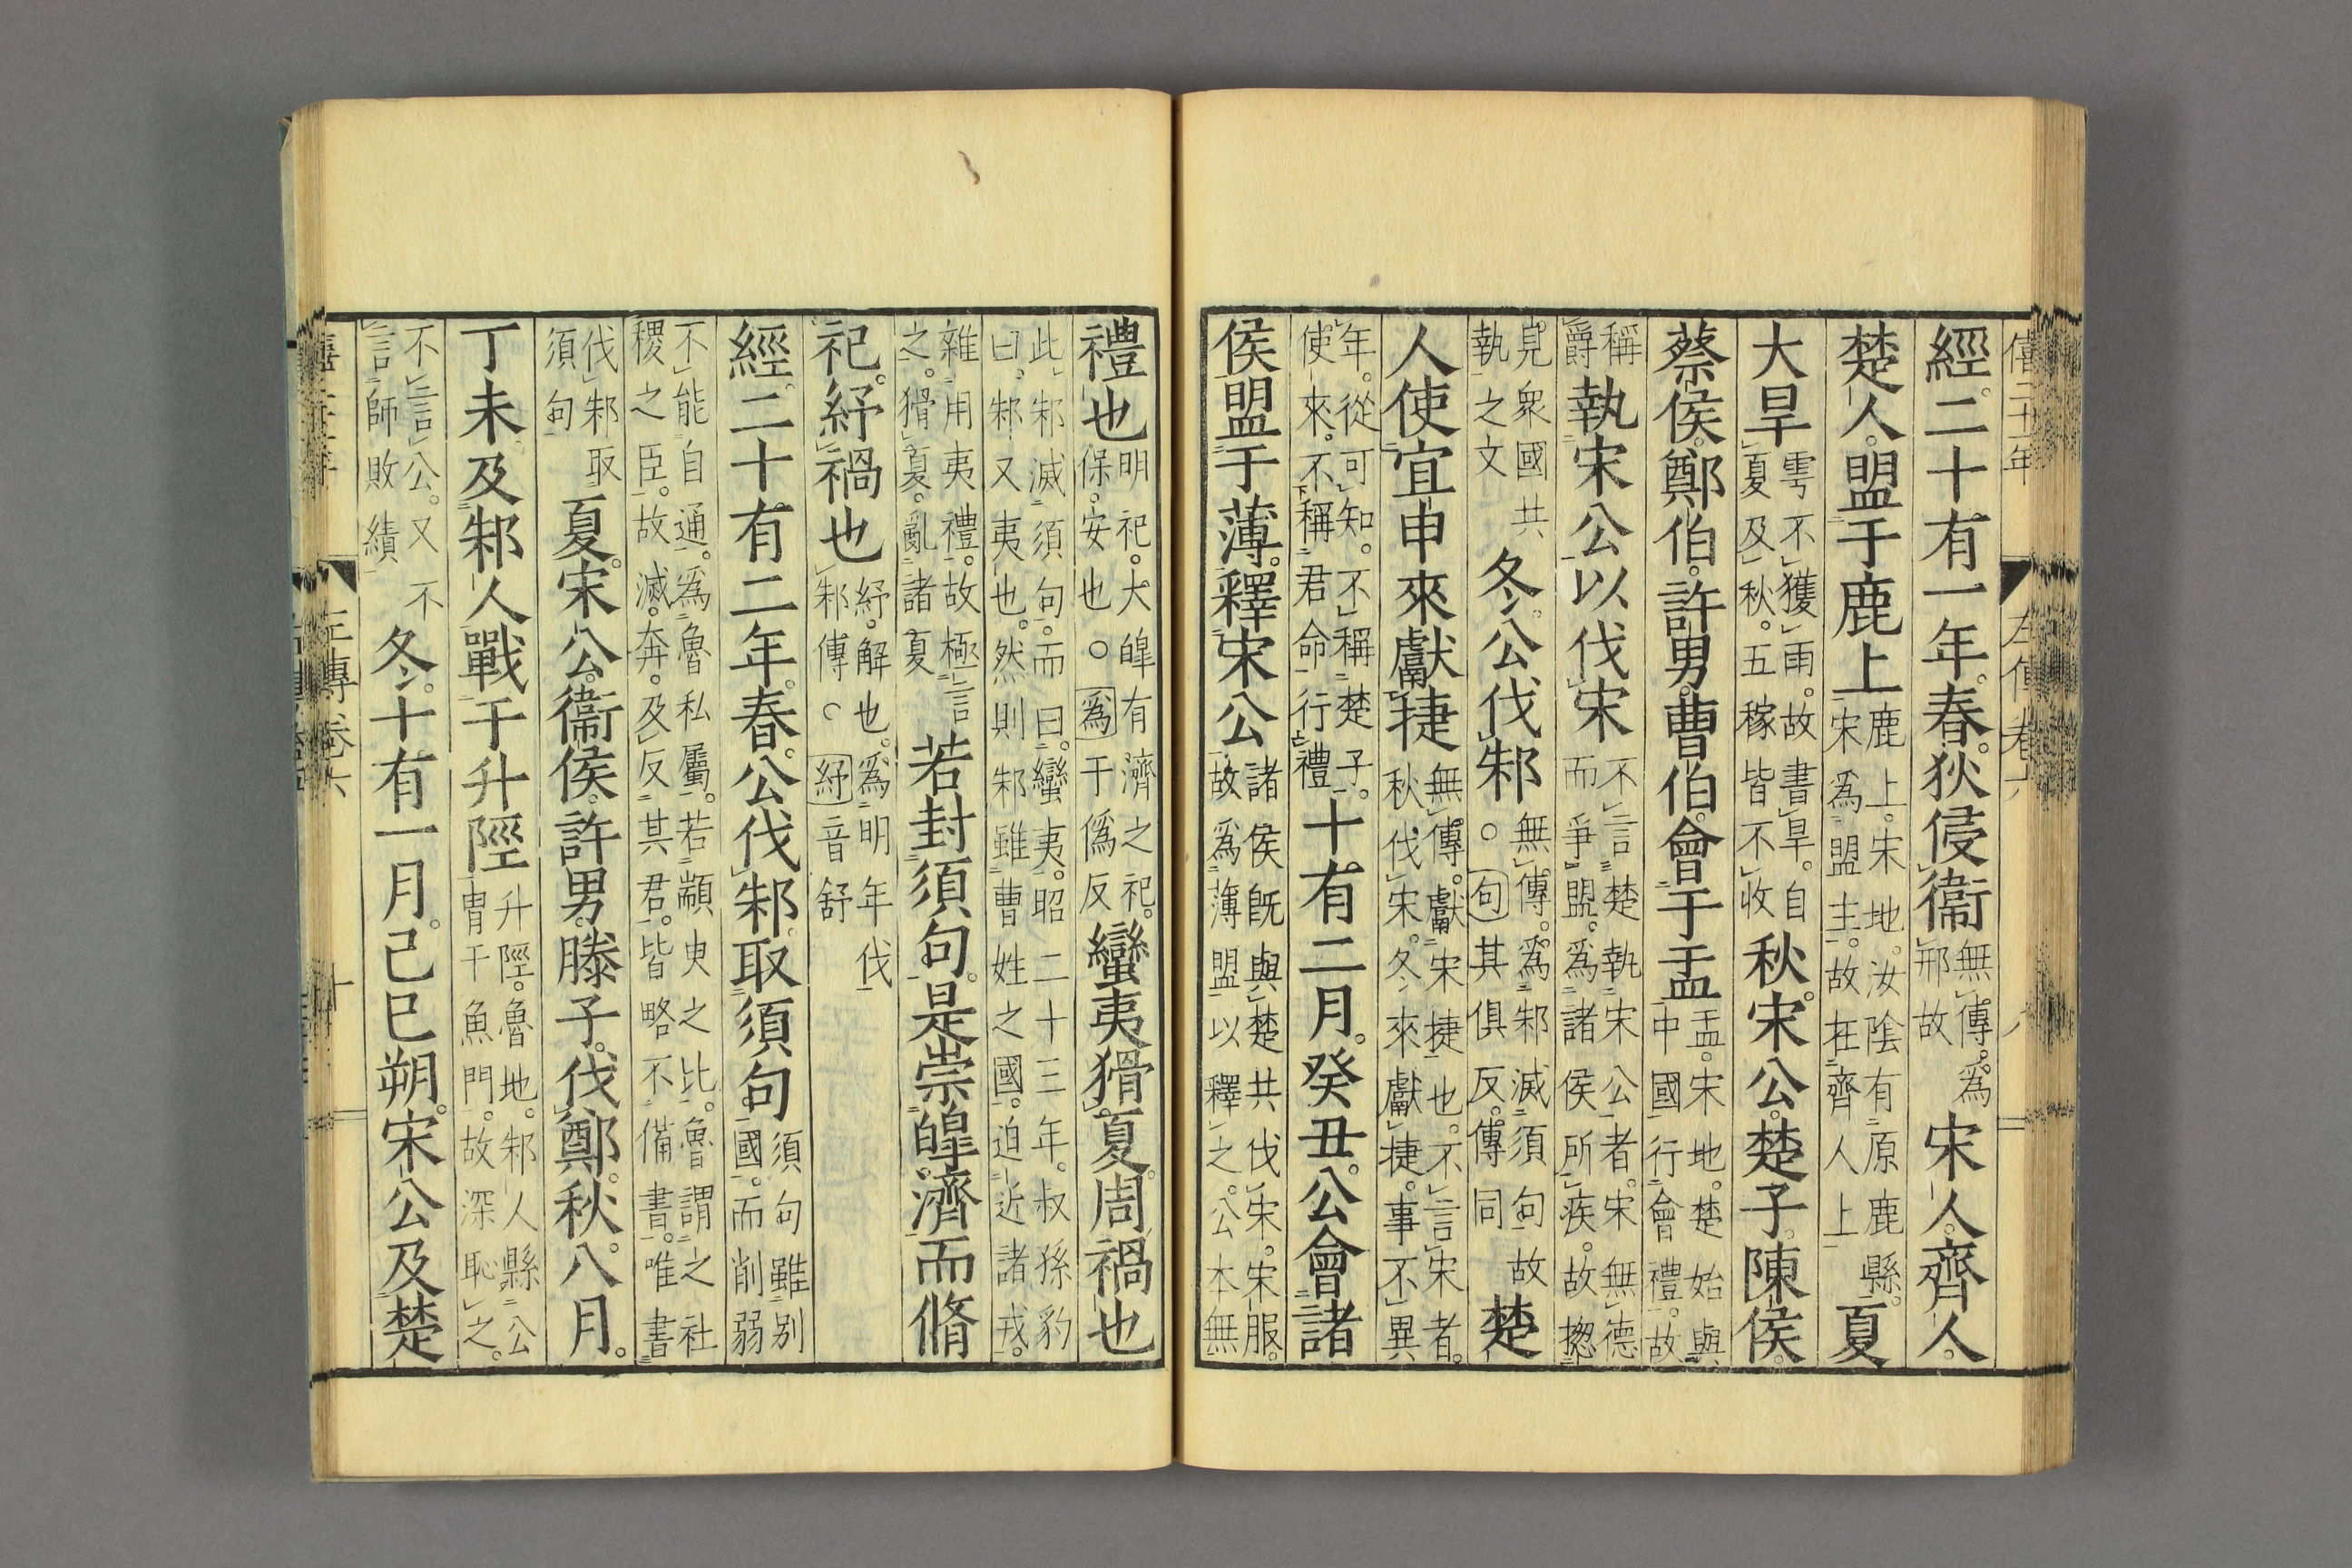 經。二十有一年。春。狄侵衞無傳。爲邢故宋人。齊人。
楚人。盟于鹿上鹿上。宋地。汝陰有原鹿縣。宋爲盟主。故在齊人上夏
大旱雩不獲雨。故書旱。自夏及秋。五稼皆不收秋。宋公。楚子。陳侯。
蔡侯。鄭伯。許男。曹伯。會于盂盂。宋地。楚始與中國行會禮。故
稱爵執宋公以伐宋不言楚執宋公者。宋無德而爭盟。爲諸侯所疾。故揔
見衆國共執之文冬。公伐邾無傳。爲邾滅須句故○句其俱反。傳同楚
人使宜申來獻捷無傳。獻宋捷也。不言宋者。秋伐宋。冬來獻捷。事不異
年。從可知。不稱楚子。使來。不稱君命行禮十有二月。癸丑。公會諸
侯盟于薄。釋宋公諸侯旣與楚共伐宋。宋服。故爲薄盟以釋之。公本無
禮也明祀。大皥有濟之祀。保。安也。○爲于僞反蠻夷猾夏。周禍也
此邾滅須句。而曰。蠻夷。昭二十三年。叔孫豹曰。邾又夷也。然則邾雖曹姓之國。迫近諸戎。
雜用夷禮。故極言之。猾夏。亂諸夏若封須句。是崇皥濟而脩
祀。紓禍也紓。解也。爲明年伐邾傳○紓音舒
經。二十有二年。春。公伐邾。取須句。須句雖別國。而削弱
不能自通。爲魯私屬。若顓臾之比。魯謂之社稷之臣。故滅。奔。及反其君。皆略不備書。唯書
伐邾取須句夏。宋公。衞侯。許男。滕子。伐鄭。秋。八月。
丁未。及邾人戰于升陘升陘。魯地。邾人縣公冑于魚門。故深恥之。
不言公。又不言師敗績冬。十有一月。己巳朔。宋公及楚